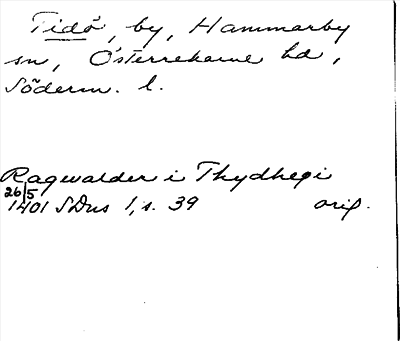 Tidö, by, Hammarby
sn, Österrekarne hd,
Söderm. l.
Ragwalder i Thydhegi
26/5
1401 SDns 1, s. 39 orig.